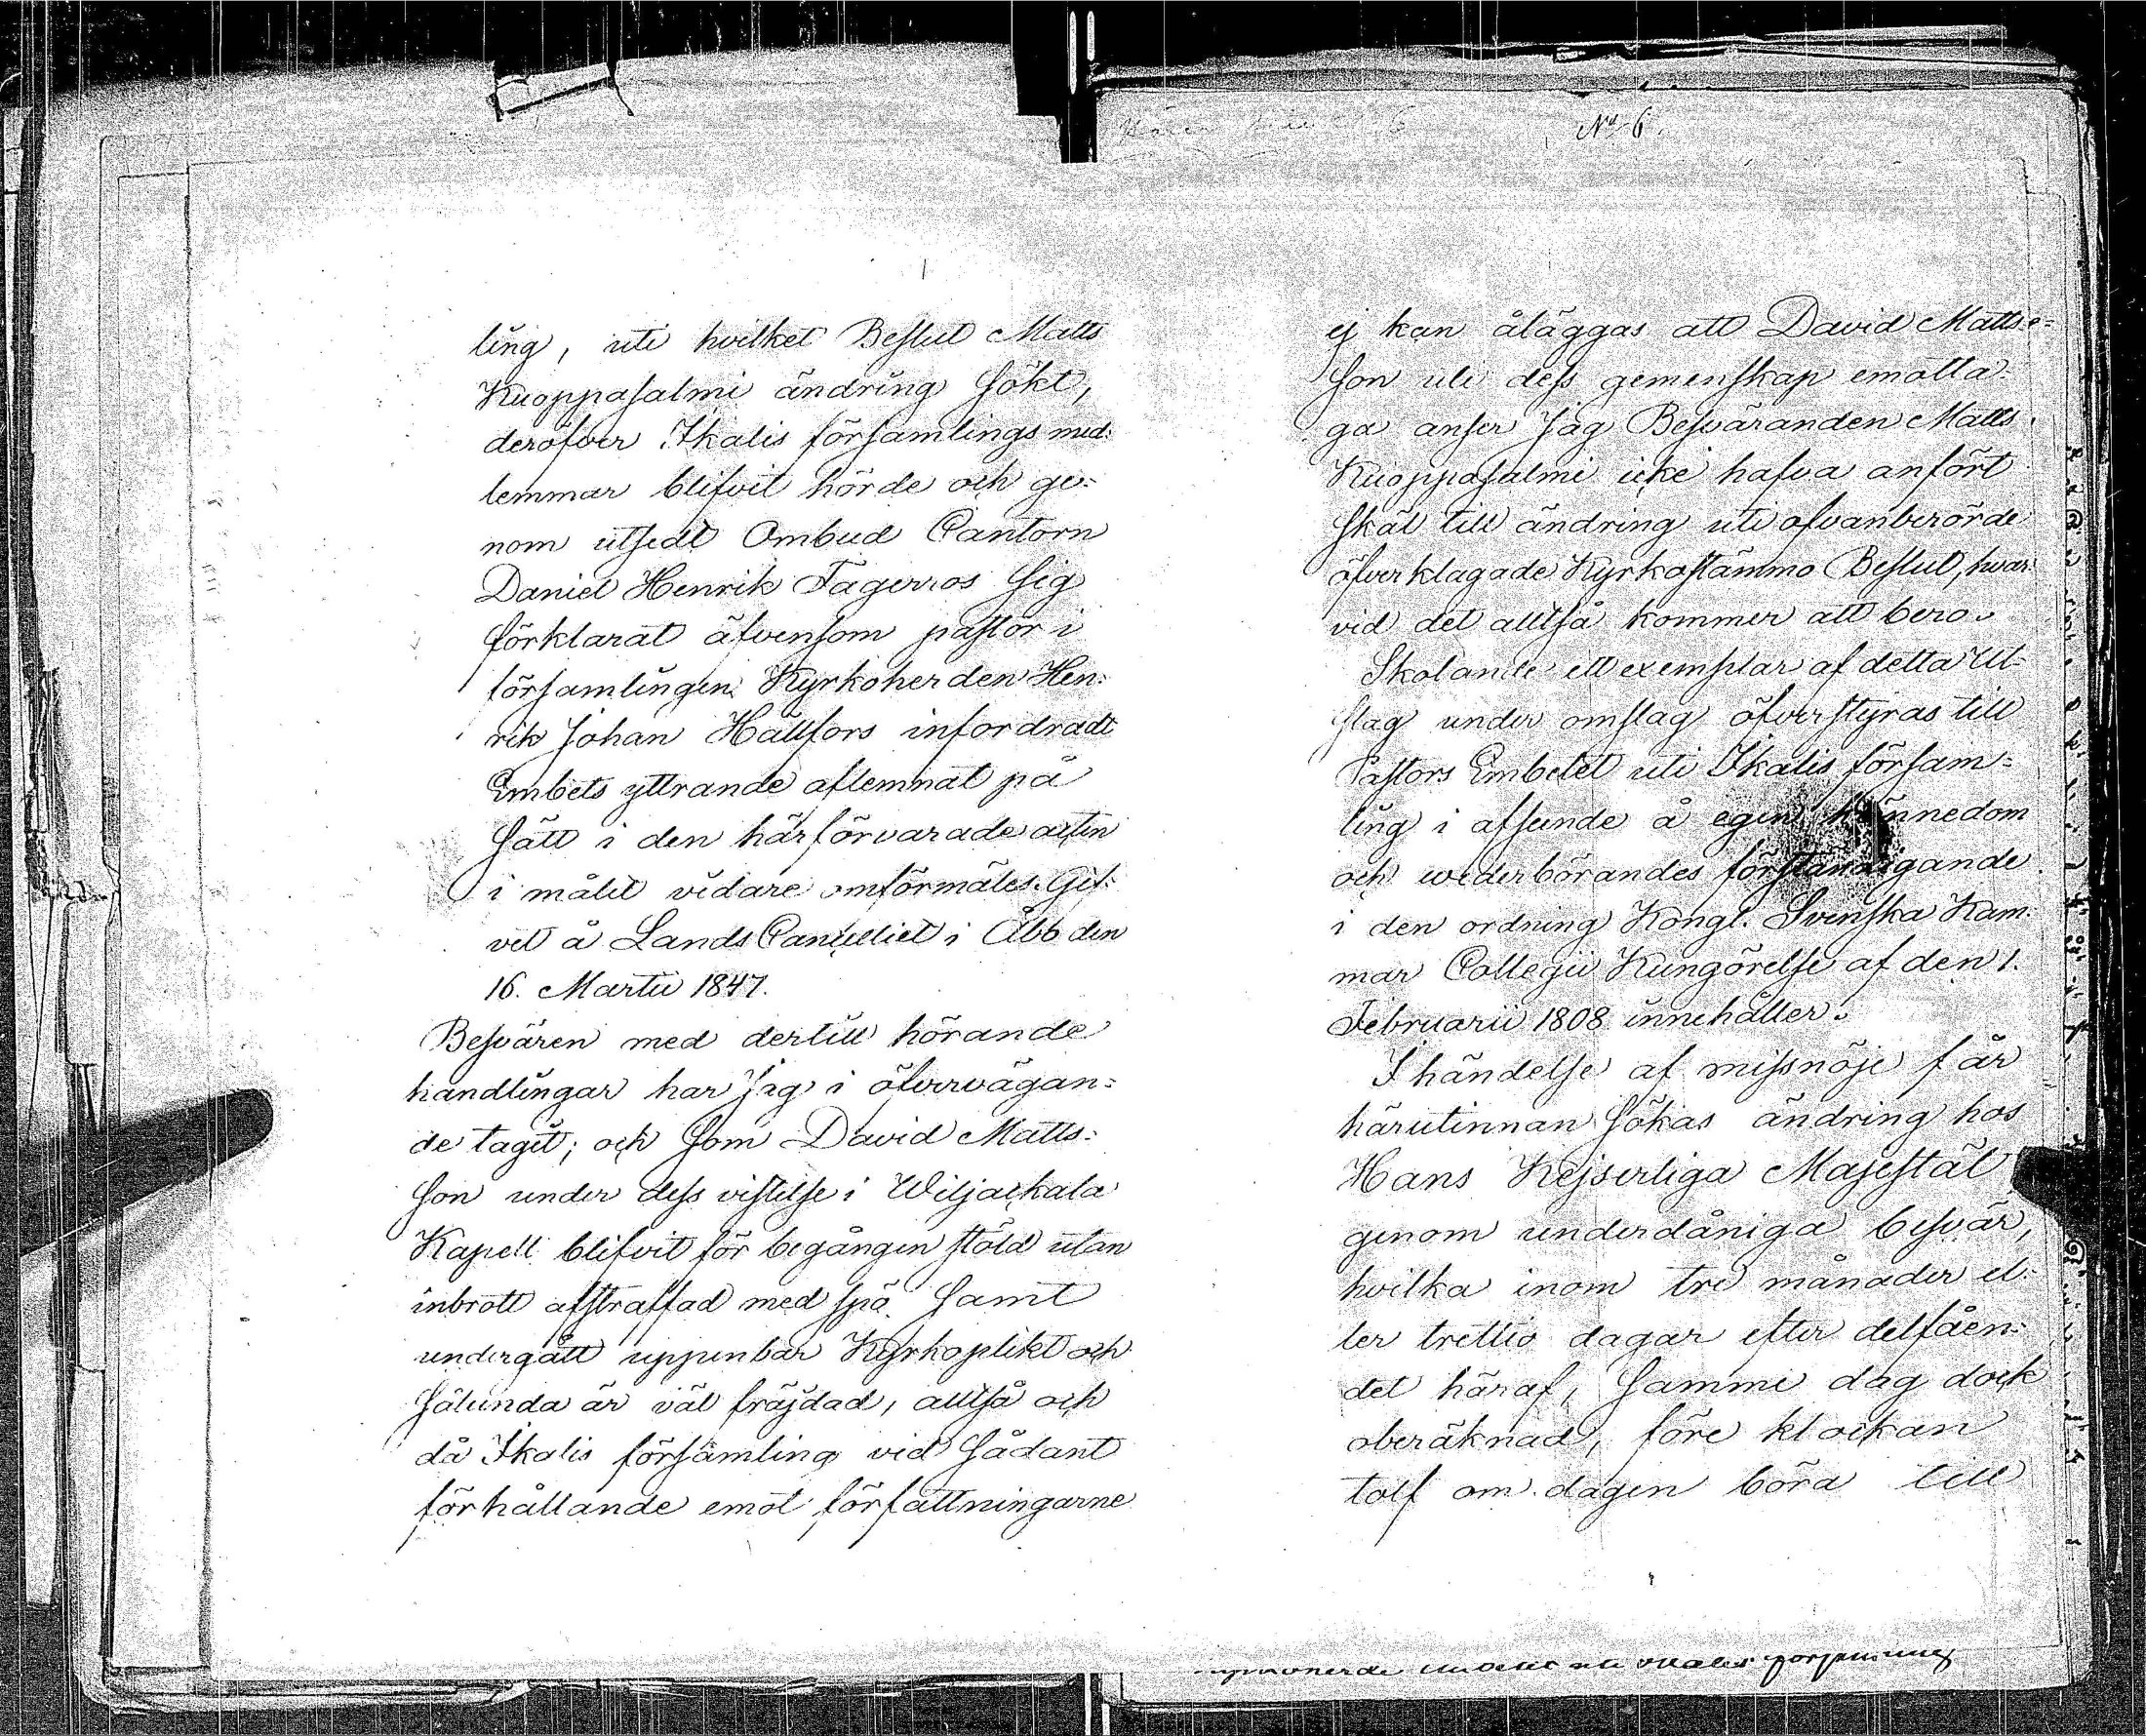 ling, uti hvilket Beslut Matts
Kuoppasalmi ändring sökt,
deröfver Ikalis församlings med-
lemmar blifvit hörde och ge-
nom utsedt Ombud Cantorn
Daniel Henrik Fagerros sig
förklarat äfvensom pastor i
församlingen Kyrkoherden Hen-
rik Johan Hällfors infordradt
Embets yttrande aflemnat på
sätt i den härförvarade acten
i målet vidare omförmäles. Gif-
vet å Lands Cancelliet i Åbo den
16. Martii 1847.
Besvären med dertill hörande
handlingar har Jag i öfvervägan-
de tagit; och som David Matts-
son under dess vistelse i Wiljackala
Kapell blifvit för begången stöld utan
inbrott afstraffad med spö samt
undergått uppenbar Kyrkoplikt och
sålunda är väl fräjdad, alltså och
då Ikalis församling vid sådant
förhållande emot författningarne
No 6.
ej kan åläggas att David Matts-
son uti dess gemenskap emotta-
ga anser Jag Besväranden Matts
Kuoppasalmi icke hafva anfört
skäl till ändring uti ofvanberörde
öfverklagade Kyrkostämmo Beslut, hvar-
vid det alltså kommer att bero.
Skolande ett exemplar af detta Ut-
slag under omslag öfverstyras till
Pastors Embetet uti Ikalis försam-
ling i afseende å egen kännedom
och wederbörandes förständigande
i den ordning Kongl. Svenska Kam-
mar Collegii Kungörelse af den 1.
Februarii 1808 innehåller.
I händelse af missnöje får
härutinnan sökas ändring hos
Hans Kejserliga Majestät
genom underdåniga besvär,
hvilka inom tre månader el-
ler trettio dagar efter delfåen-
det häraf, samma dag dock
oberäknad, före klockan
tolf om dagen böra till